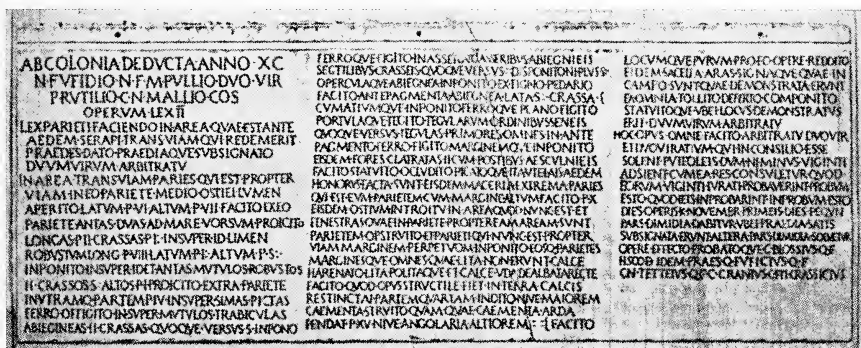 AB COLONIA DEDVCTA ANNO · XC
N · FVFIDIO · N · F · M · PVLLIO · DVO · VIR
P · RVTILIO · CN · MALLIO · COS
OPERVM · LEX · II
LEX · PARIETI · FACIENDO · IN · AREA · QVAE · EST · ANTE
AEDEM · SERAPI · TRANS · VIAM · QVI · REDEMERIT
PRAEDES · DATO · PRAEDIAQVE · SVBSIGNATO
DVVMVIRVM · ARBITRATV
IN · AREA · TRANS · VIAM · PARIES · QVI · EST · PROPTER
VIAM · IN · EO · PARIETE · MEDIO · OSTIEI · LVMEN
APERITO · LATVM · P · VI · ALTVM · P · VII · FACITO · EX · EO
PARIETE · ANTAS · DVAS · AD · MARE · VORSVM · PROICITO
LONGAS · P · II · CRASSAS · P · I · INSVPER · ID · LIMEN
ROBVSTVM · LONG · P · VIII · LATVM · P · I · ALTVM · P · S
INPONITO · INSVPER · ID · ET · ANTAS · MVTVLOS · ROBVSTOS
II · CRASSOS · S · ALTOS · P · I · PROICITO · EXTRA · PARIETE
IN · VTRAMQ · PARTEM · P · IV · INSVPER · SIMAS · PICTAS
FERRO · OFFIGITO · INSVPER · MVTVLOS · TRABICVLAS
ABIEGINEAS · II · CRASSAS · QVOQVE · VERSVS · S · INPONO
FERROQVE · FIGITO · INASSERATO · ASSERIBVS · ABIEGNIEIS
SECTILIBVS · CRASSEIS · QVOQVE · VERSVS · DISPONITO
OPERCVLAQVE · ABIEGNEA · INPONITO · EX · TIGNO · PEDARIO
FACITO · ANTEPAGMENTA · ABIEGNEA · LATA · CRASSA
CVMATIVMQVE · INPONITO · FERROQVE · PLANO · FIGITO
PORTVLAQVE · TEGITO · TEGVLARVM · ORDINIBVS · SENEIS
QVOQVE · VERSVS · TEGVLAS · PRIMORES · OMNES · IN · ANTE
PAGMENTO · FERRO · FIGITO · MARGINEMQ · INPONITO
EISDEM · FORES · CLATRATAS · II · CVM · POSTIBVS · AESCVLNIEIS
FACITO · STATVITO · OCCLVDITO · PICATOQVE · ITA · VTEI · AD · AEDEM
HONORVS · FACTA · SVNT · EISDEM · MACERIA · EXTREMA · PARIES
QVI · EST · EVM · PARIETEM · CVM · MARGINE · ALTVM · FACITO · P · X
EISDEM · OSTIVM · INTROITV · IN · AREA · QVOD · NVNC · EST · ET
FENESTRAS · QVAE · IN · PARIETE · PROPTER · EAM · AREAM · SVNT
PARIETEM · OPSTRVITO · ET · PARIETI · QVI · NVNC · EST · PROPTER
VIAM · MARGINEM · PERPETVOM · INPONITO · EOSQ · PARIETES
MARGINESQVE · OMNES · QVAE · LITA · NON · ERVNT · CALCE
HARENATO · LITA · POLITAQVE · ET · CALCE · VDA · DEALBATA · RECTE
FACITO · QVOD · OPVS · STRVCTILE · FIET · IN · TERRA · CALCIS
RESTINCTAI · PARTEM · QVARTAM · INDITO · NIVE · MAIOREM
CAEMENTA · STRVITO · QVAM · QVAE · CAEMENTA · ARDA
PENDAT · P · XV · NIVE · ANGOLARIA · ALTIOREM · FACITO
LOCVMQVE · PVRVM · PRO · EO · OPERE · REDDITO
EIDEM · SACELLA · ARAS · SIGNAQVE · QVAE · IN
CAMPO · SVNT · QVAE · DEMONSTRATA · ERVNT
EA · OMNIA · TOLLITO · DEFERTO · COMPONITO
STATVITOQVE · VBEI · LOCVS · DEMONSTRATVS
ERIT · DVVMVIRVM · ARBITRATV
HOC · OPVS · OMNE · FACITO · ARBITRATV · DVOVIR
ETIIVOVIRATIVM · QVI · IN · CONSILIO · ESSE
SOLENT · PVTEOLEIS · DVM · NI · MINVS · VIGINTI
ADSIENT · CVM · EA · RES · CONSVLETVR · QVOD
EORVM · VIGINTI · IVRATI · PROBAVERINT · PROBVM
ESTO · QVOD · IEIS · IN · PROBARINT · INPROBVM · ESTO
DIES · OPERIS · K · NOVEMBR · PRIMEIS · DIES · PEQVN
PARS · DIMIDIA · DABITVR · VBEI · PRAEDIA · SATIS
SVBSIGNATA · ERVNT · ALTERA · PARS · DIMIDIA · SOLVETVR
OPERE · EFFECTO · PROBATOQVE · C · BLOSSIVS · Q · F
IDEM · PRAES · Q · FVFICIVS · Q · F
CN · TETTEIVS · Q · F · C · GRANIVS · C · F · TI · CRASSICIVS